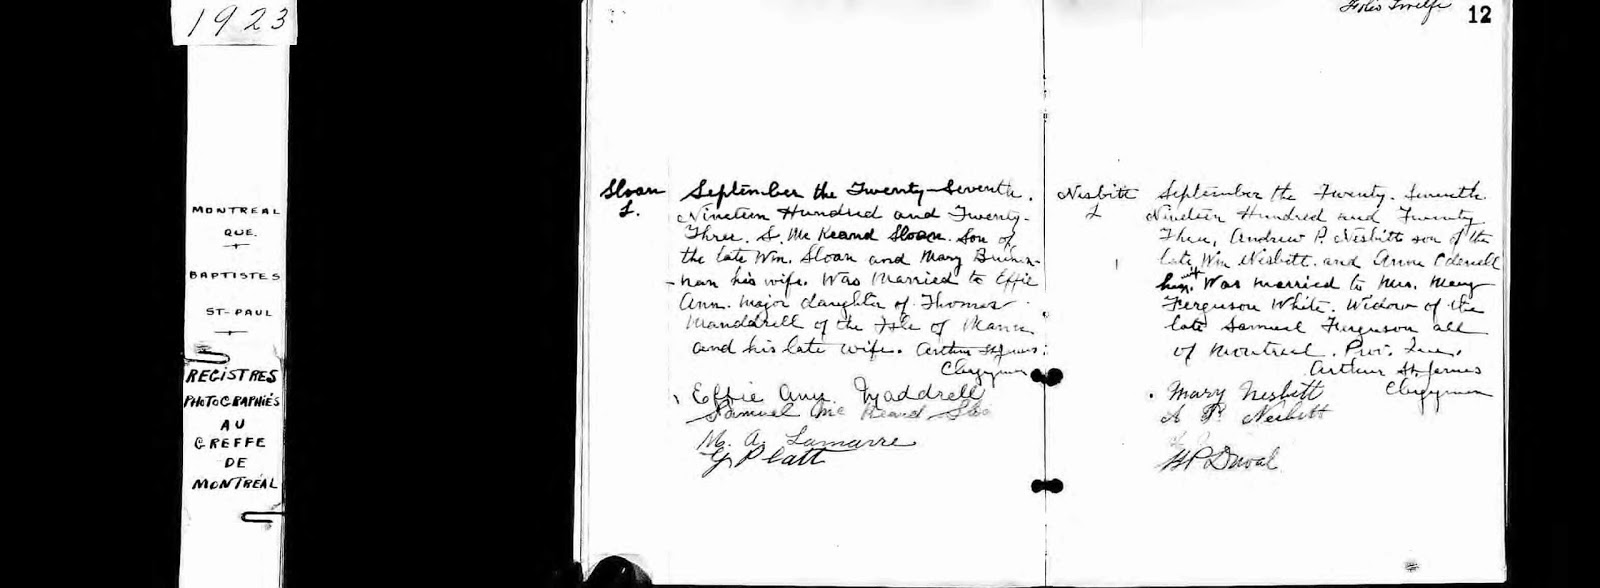 1923
MONTREAL
QUE.
BAPTISTES
ST-PAUL
REGISTRES
PHOTOGRAPHIÉS
AU
GREFFE
DE
MONTRÉAL
Sloan
S.
September the Twenty-Seventh.
Nineteen Hundred and Twenty-
Three. S. Mc Keand Sloan. Son of
the late Wm. Sloan and Mary
nan his wife. Was Married to Effie
Ann. Major daughter of Thomas
Manddrell of the Isle of Mann
and his late wife. Arthur St James
Clergyman
Effie Ann. Maddrell
Samuel Mc Keand
M. A. Lamarre
G Platt
Folio Twelfe 12
Nesbitt
September the Twenty. Seventh
Nineteen Hundred and Twenty
Three, Andrew P. Nesbitt son of the
late Wm Nesbitt. and Anne
wife. Was married to Mrs. Mary
Ferguson White. Widow of the
late Samuel Ferguson all
of Montreal. Pro. Que.
Arthur St. James
Clergyman
Mary Nesbitt
A P. Nesbitt
Duval